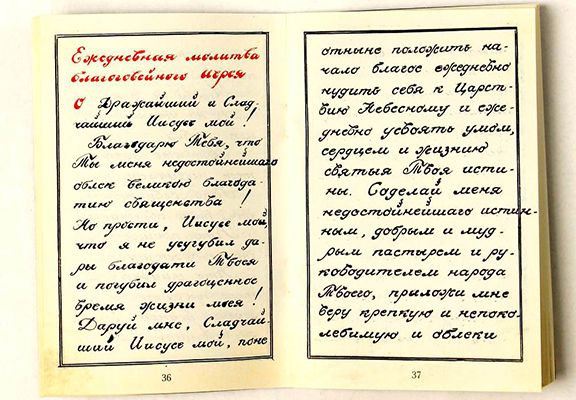 Ежедневная молитва
благоговейного Иерея
О Дражайший и Слад-
чайший Иисусе мой!
Благодарю Тебя, что
Ты меня недостойнейшаго
облек великою благода-
тию священства!
Но прости, Иисусе мой,
что я не усугубил да-
ры благодати Твоея
и погубил драгоценное
время жизни моея!
Даруй мне, Сладчай-
ший Иисусе мой, поне
36
отныне положить на-
чало благое ежедневно
нудить себя к Царст-
вию Небесному и еже-
дневно усвоять умом,
сердцем и жизнию
святыя Твоя исти-
ны. Соделай меня
недостойнейшаго истин-
ным, добрым и муд-
рым пастырем и ру-
ководителем народа
Твоего, приложи мне
веру крепкую и непоко-
лебимую и облеки
37